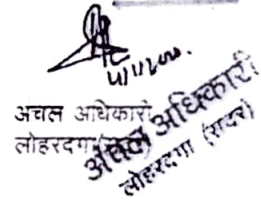 अचल अधिकारी
लोहरदगा
अंचल अधिकारी
लोहरदगा (सदर)